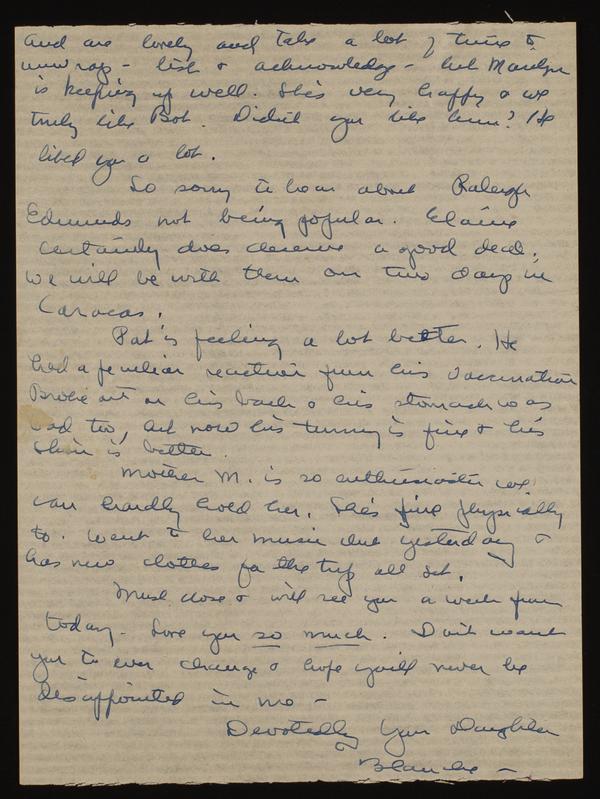 and are lovely and take a lot of time to
unwrap - list & acknowledge - but Marilyn
is keeping up well. She's very happy & we
truly like Bob. Didn't you like him? He
liked you a lot.
So sorry to hear about Raleigh
Edmunds not being popular. Elaine
certainly does deserve a good deal.
We will be with them on two days in
Caracas.
Pat is feeling a lot better. He
had a peculiar reaction from his vaccination
Broke out on his back & his stomach was
bad too, but now his tummy is fine & his
skin is better.
Mother M. is so enthusiastic we
can hardly hold her. She's fine physically
to. Went to her music club yesterday &
has new clothes for the trip all set.
Must close & will see you a week from
today. Love you so much. Don't want
you to ever change & hope you'll never be
disappointed in me -
Devotedly Your Daughter
Blanche -